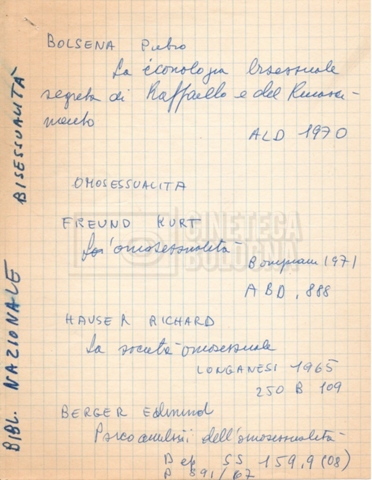 BOLSENA Pietro
La iconologia bisessuale
segreta di Raffaello e del Rinasci-
mento
ALD 1970
OMOSESSUALITA
FREUND KURT
L'omosessualità
Bompiani 1971
ABD, 888
HAUSER RICHARD
La società omosessuale
LONGANESI 1965
250 B 109
BERGER Edmund
Psicoanalisi dell'omosessualità
Dep SS 159,9 (08)
P 891/67
BIBL. NAZIONALE BISESSUALITÀ
CINETECA
BOLOGNA